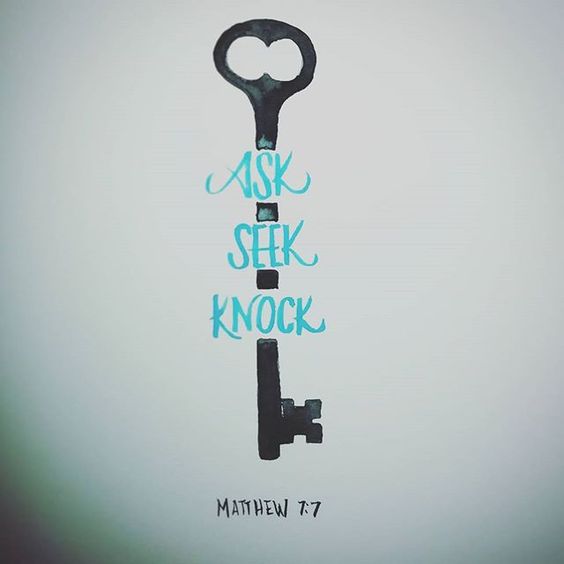 ASK
SEEK
KNOCK
MATTHEW 7:7